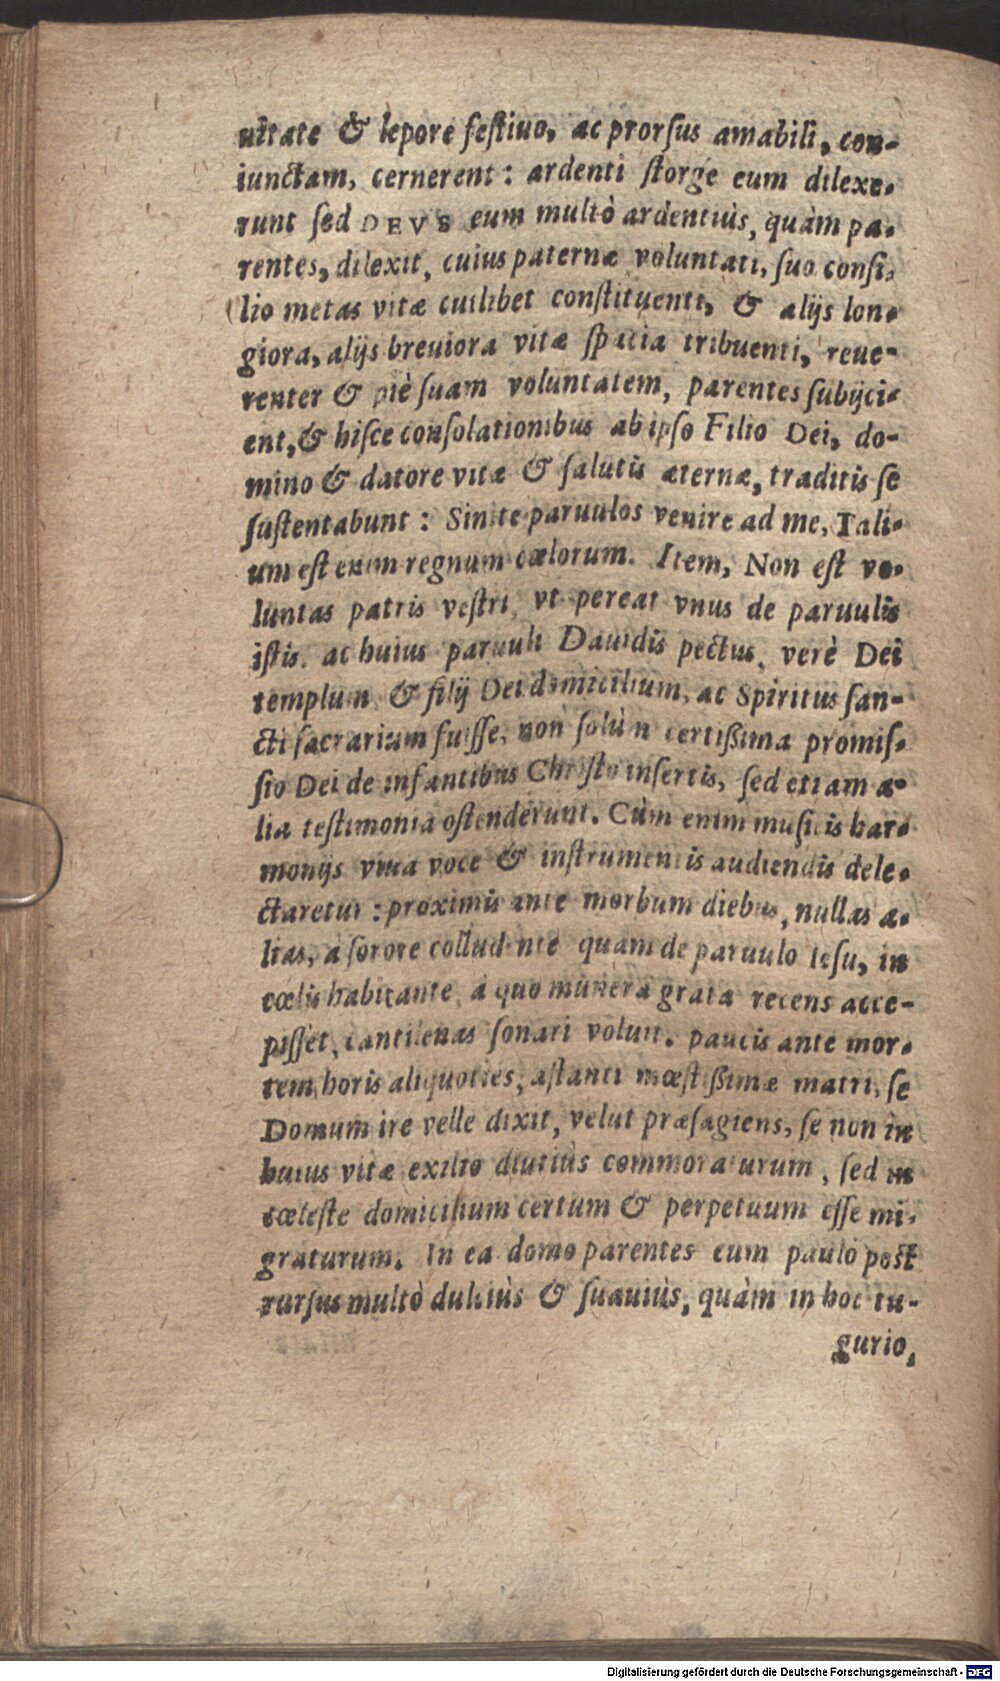 uitate & lepore festiuo, ac prorsus amabili, con-
iunctam, cernerent: ardenti storge eum dilexe-
runt sed DEVS eum multò ardentiùs, quàm pa-
rentes, dilexit, cuius paternæ voluntati, suo consi-
lio metas vitæ cuilibet constituenti, & alijs lon-
giora, alijs breuiora vitæ spacia tribuenti, reue-
renter & piè suam voluntatem, parentes subijci-
ent, & hisce consolationibus ab ipso Filio Dei, do-
mino & datore vitæ & salutis æternæ, traditis se
sustentabunt: Sinite paruulos venire ad me, Tali-
um est enim regnum cælorum. Item, Non est vo-
luntas patris vestri, vt pereat vnus de paruulis
istis. ac huius paruuli Dauidis pectus, verè Dei
templum & filij Dei domicilium, ac Spiritus san-
cti sacrarium fuisse, non solùm certißima promis-
sio Dei de infantibus Christo insertis, sed etiam a-
lia testimonia ostenderunt. Cùm enim musicis har-
monijs viua voce & instrumentis audiendis dele-
ctaretur: proximis ante morbum diebus, nullas a-
lias, à sorore colludente quam de paruulo Iesu, in
cœlis habitante, à quo munera grata recens acce-
pisset, cantilenas sonari voluit. paucis ante mor-
tem horis aliquoties, astanti mœstißimæ matri, se
Domum ire velle dixit, velut præsagiens, se non in
huius vitæ exilio diutiùs commoraturum, sed in
cœleste domicilium certum & perpetuum esse mi-
graturum. In ea domo parentes eum paulò post
rursus multò dulciùs & suauiùs, quàm in hoc tu-
gurio,
Digitalisierung gefördert durch die Deutsche Forschungsgemeinschaft - DFG